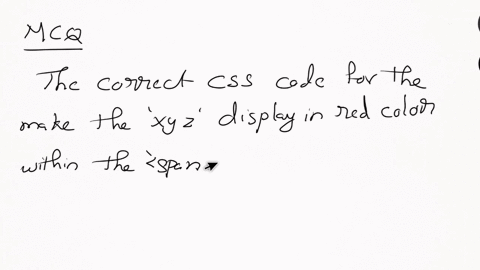 MCQ
The correct css code for the
make the 'xyz' display in red color
within the '<span